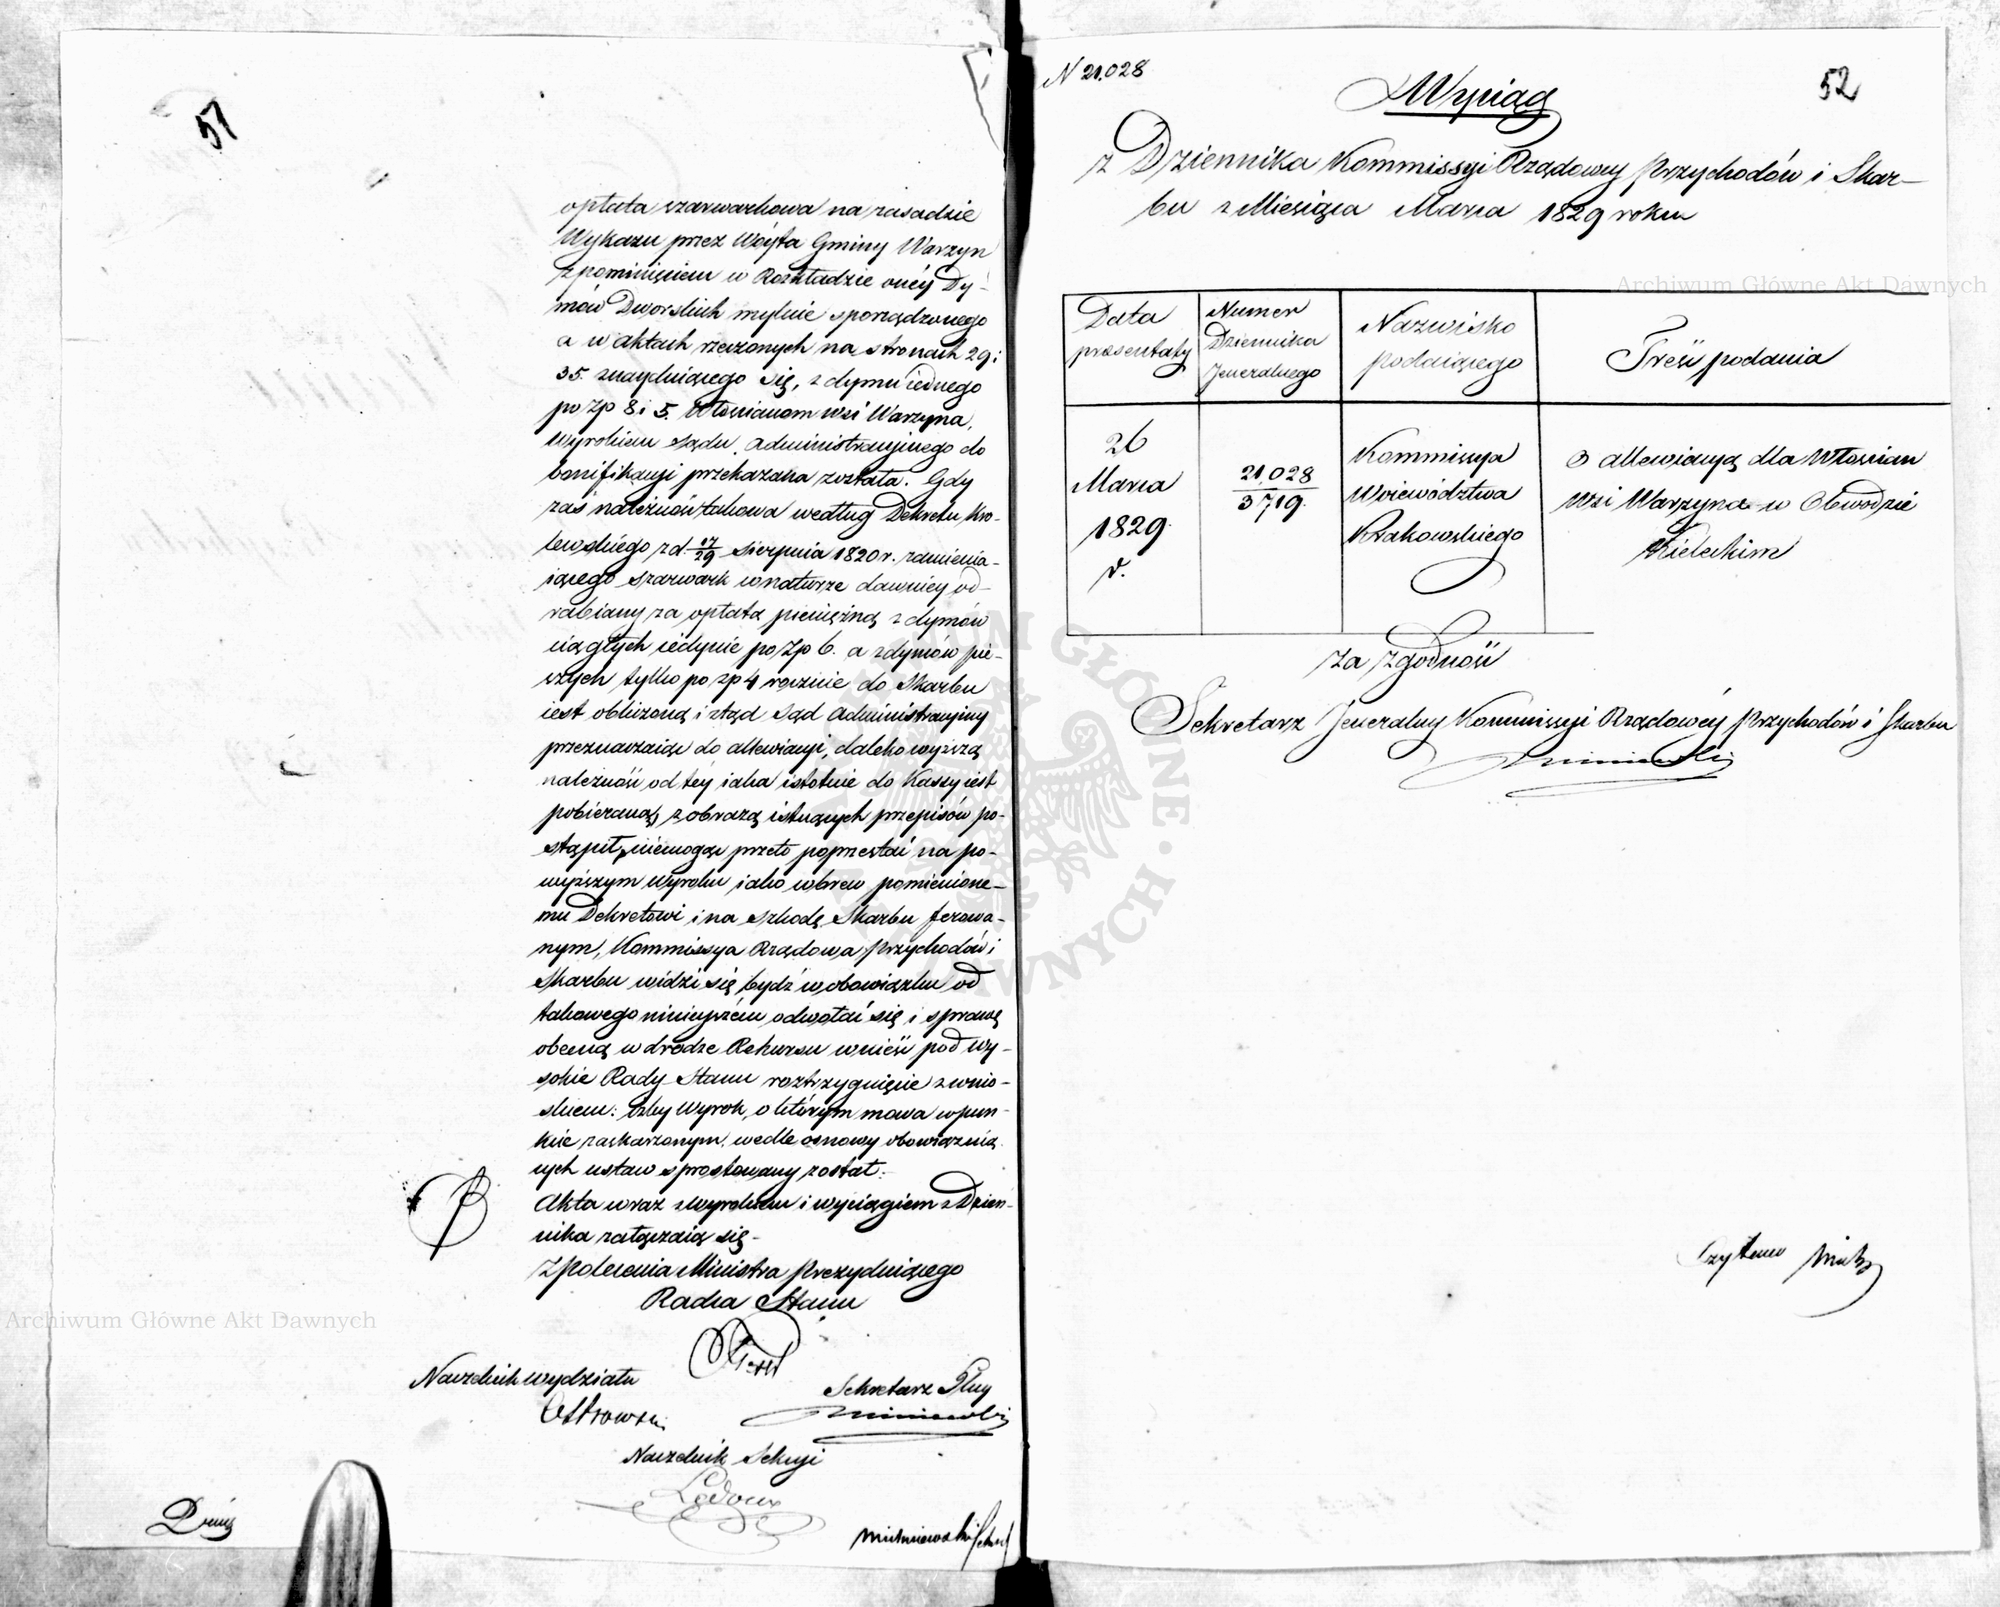 51
opłata szarwarkowa na zasadzie
Wykazu przez Wóyta Gminy Warzyn
z pominięciem w Rozkładzie onéy Dy-
mów Dworskich mylnie sporządzonego
a w aktach rzeczonych na stronach 29 i
35. znayduiącego się, z dymu iednego
po Zp 8 i 5. Włościanom wsi Warzyna,
wyrokiem Sądu Administracyinego do
bonifikacyi przekazana została. Gdy
zaś należność takowa według Dekretu Kró-
lewskiego z d. 17/29 Sierpnia 1820 r. zamienia-
iącego szarwark w naturze dawniey od-
rabiany za opłatą pieniężną z dymów
ciągłych iedynie po Zp 6. a z dymów pie-
szych tylko po zp 4 rocznie do Skarbu
iest obliczoną i ztąd Sąd Administracyiny
przeznaczaiąc do allewiacyi, daleko wyższą
należność od téy iaka istotnie do Kassy iest
pobieraną, z obrazą istnących przepisów po-
stąpił, niemogąc przeto poprzestać na po-
wyższym wyroku iako wbrew pomienione-
mu Dekretowi i na szkodę Skarbu ferowa-
nym, Kommissya Rządowa Przychodów i
Skarbu widzi się bydź w obowiązku od
takowego ninieyszém odwołać się i sprawę
obecną w drodze Rekursu wnieść pod wy-
sokie Rady Stanu roztrzygnięcie z wnio-
skiem: żeby Wyrok, o którym mowa w pun-
kcie zaskarżonym, wedle osnowy obowiązuią-
cych ustaw sprostowany został.
Akta wraz z wyrokiem i wyciągiem z Dzien-
nika załączaią się.
Z polecenia Ministra Prezyduiącego
Radca Stanu
Naczelnik wydziału
Ostrowski
Sekretarz Jlny
Naczelnik Sekcyi
Ledoux
N 21.028
52
Wyciąg
z Dziennika Kommissyi Rządowey Przychodów i Skar-
bu z Miesiąca Marca 1829 roku
Data prezentaty
Numer Dziennika Jeneralnego
Nazwisko podaiącego
Treść podania
26 Marca 1829 r.
21.028/3719.
Kommissya Woiewództwa Krakowskiego
O allewiacyą dla Włościan wsi Warzyna w Obwodzie Kieleckim
Za zgodność
Sekretarz Jeneralny Kommissyi Rządowéy Przychodów i Skarbu
Czytano
Archiwum Główne Akt Dawnych
Archiwum Główne Akt Dawnych